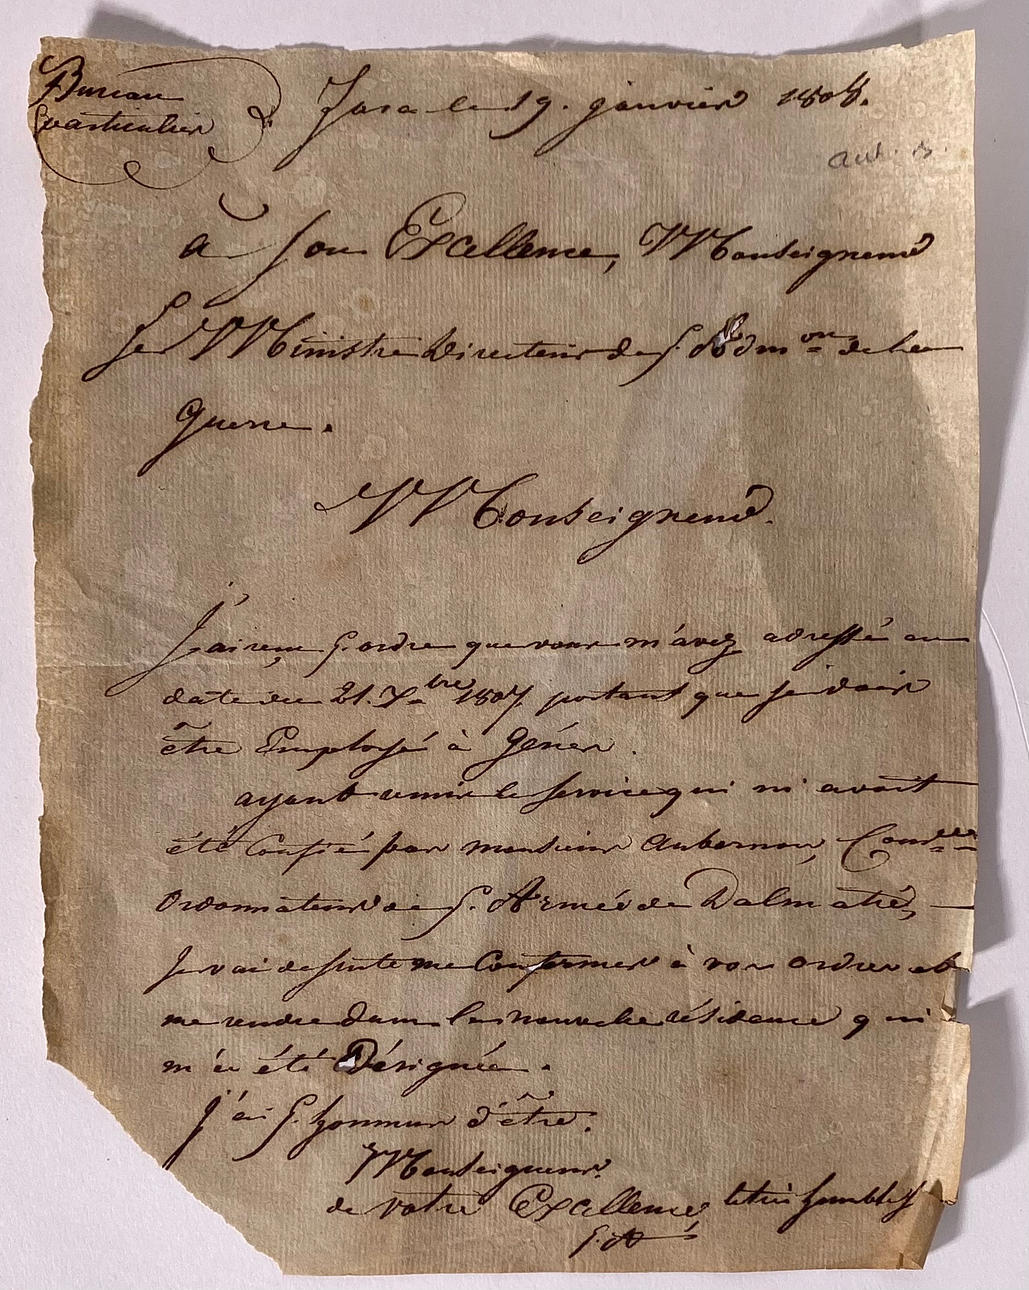 Bureau
particulier
Zara le 19. janvier 1808.
à Son Excellence, Monseigneur
Le Ministre Directeur de l'Adm.on de la
guerre.
Monseigneur.
J'ai reçu l'ordre que vous m'avez adressé en
date du 21. Xbre 1807 portant que je dois
être Employé à Gênes.
ayant remis le service qui m'avait
été Confié par monsieur Aubernon,
Ordonnateur de l'Armée de Dalmatie,
Je vai de suite me Conformer à vos ordres et
me rendre dans la nouvelle résidence qui
m'a été Désignée.
j'ai l'honneur d'être.
Monseigneur.
de votre Excellence le très humble